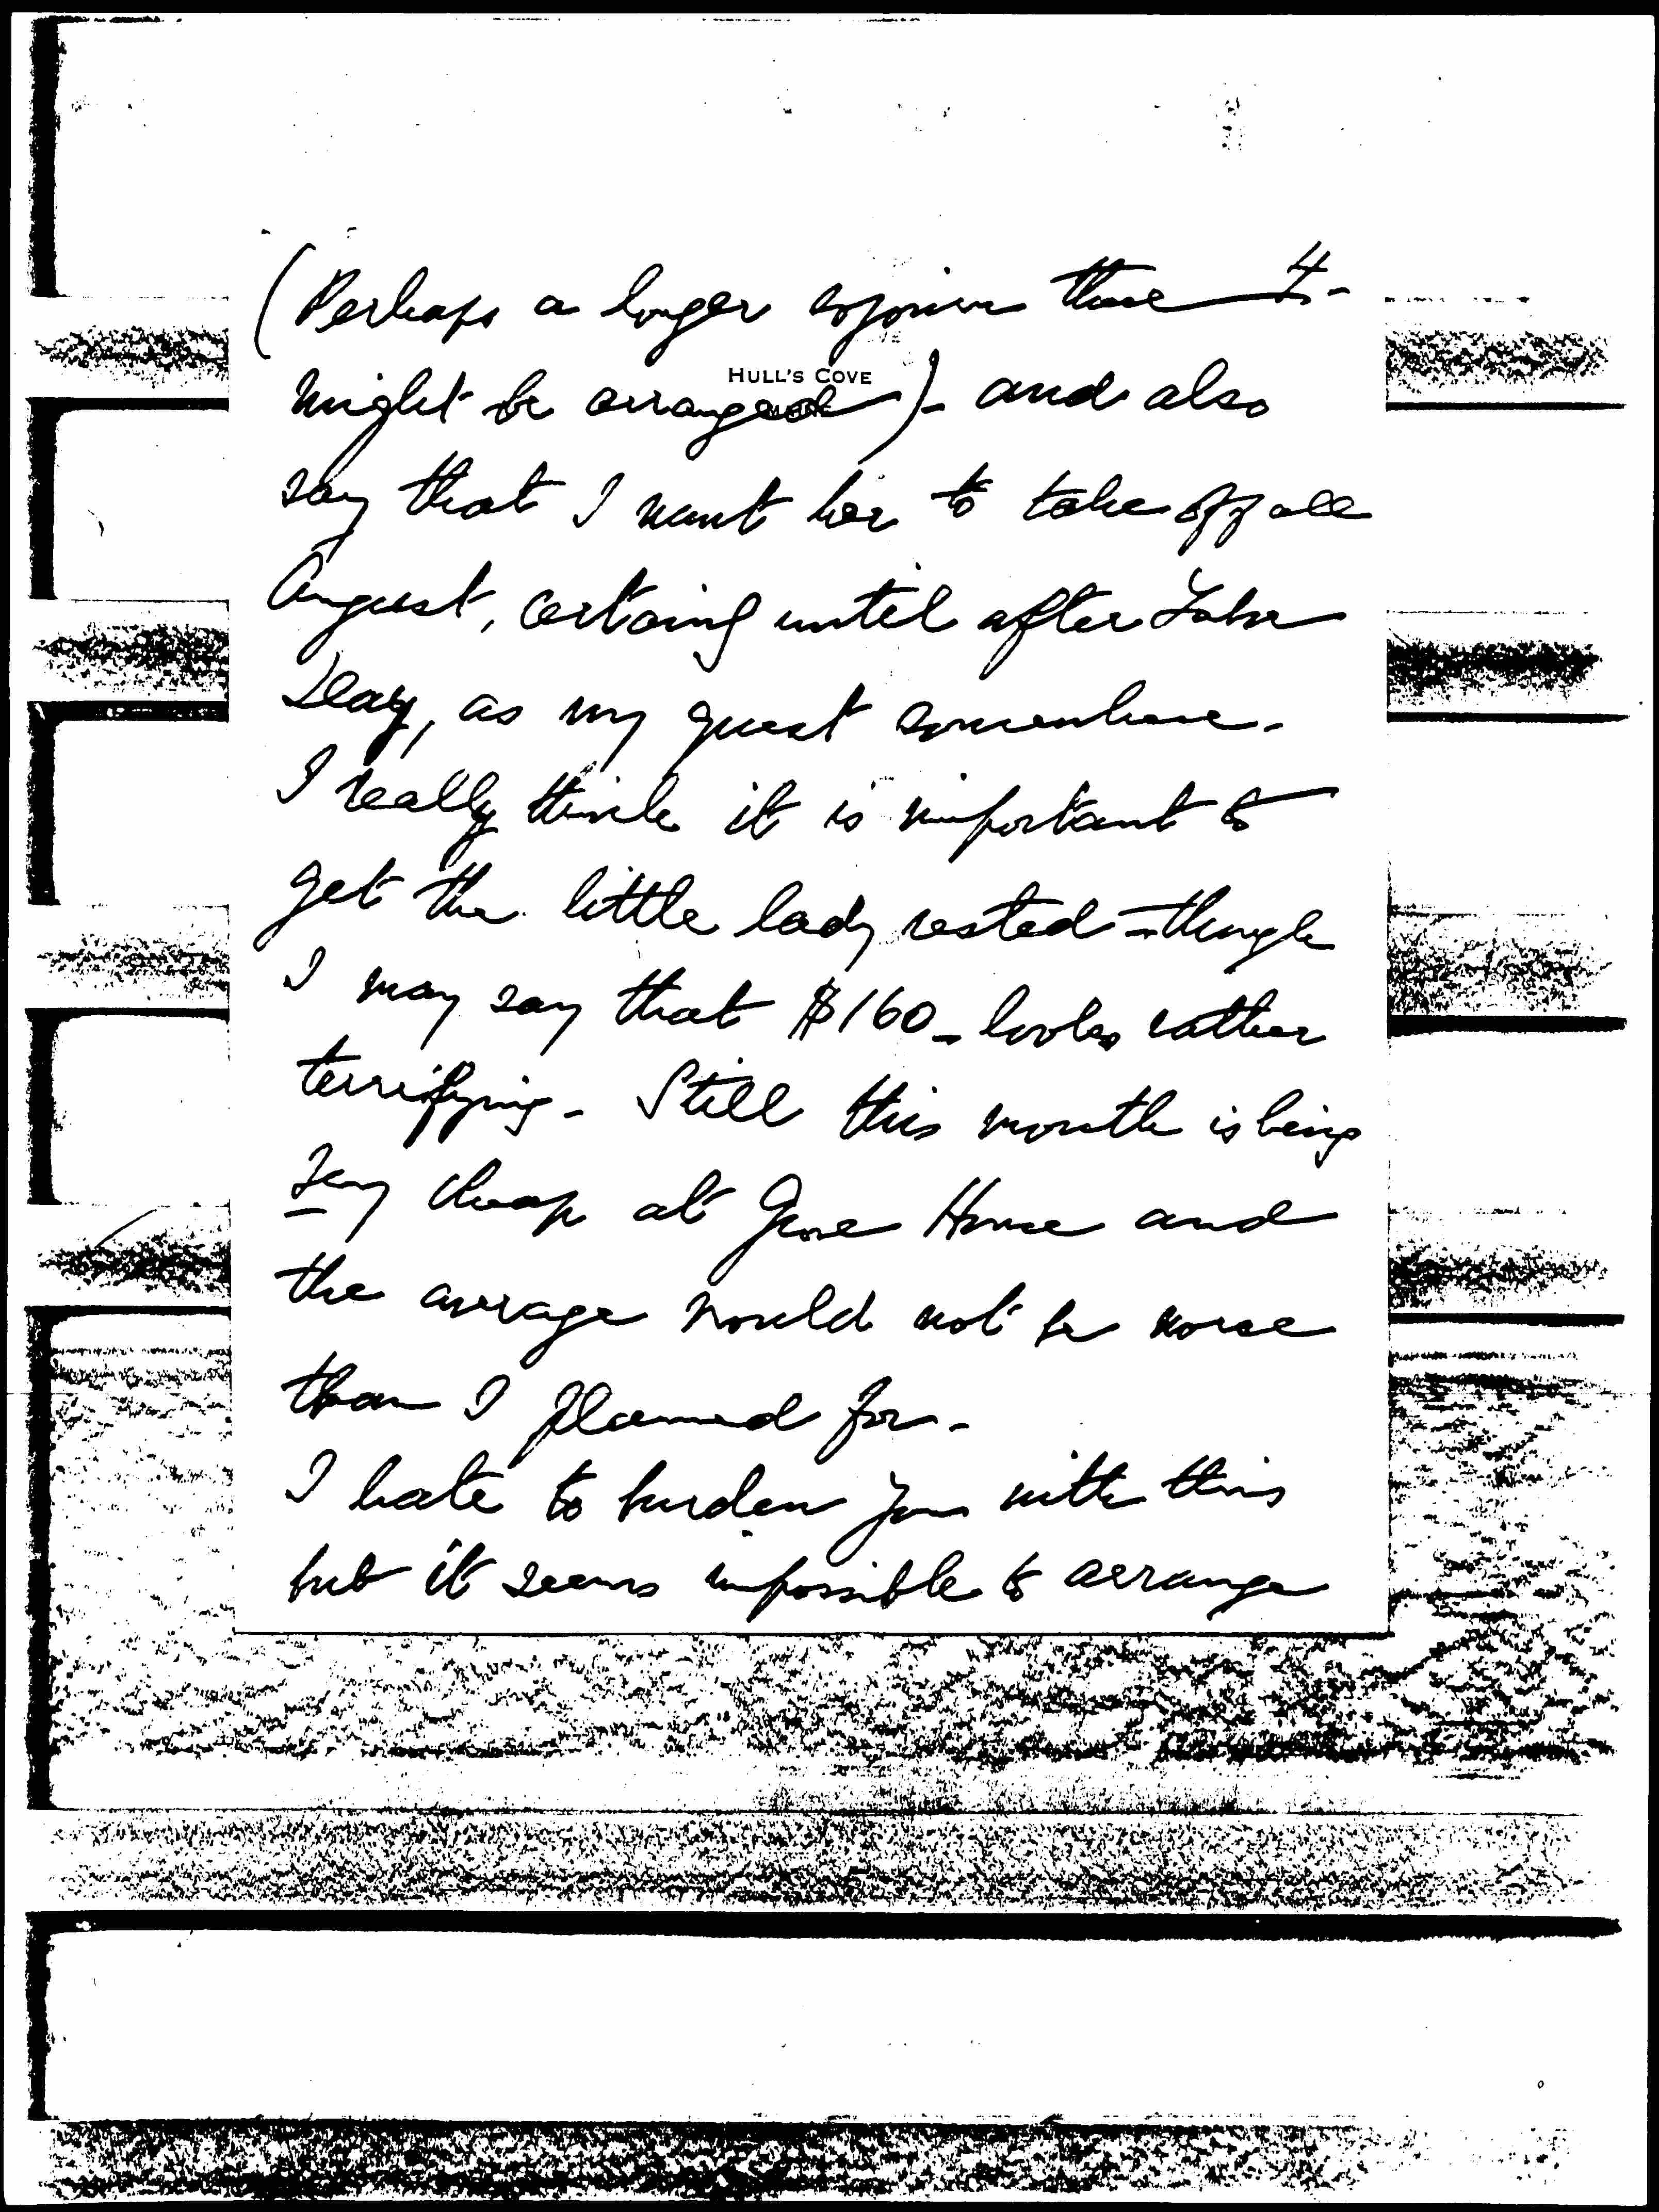 (Perhaps a longer sojourn there 4-
HULL'S COVE
might be arranged) - and also
say that I want her to take off all
August, certainly until after Labor
Day, as my guest somewhere.
I really think it is important to
get the little lady rested - though
I may say that $160 - looks rather
terrifying - Still this month is being
very cheap at House and
the average would not be worse
than I planned for -
I hate to burden you with this
but it seems impossible to arrange